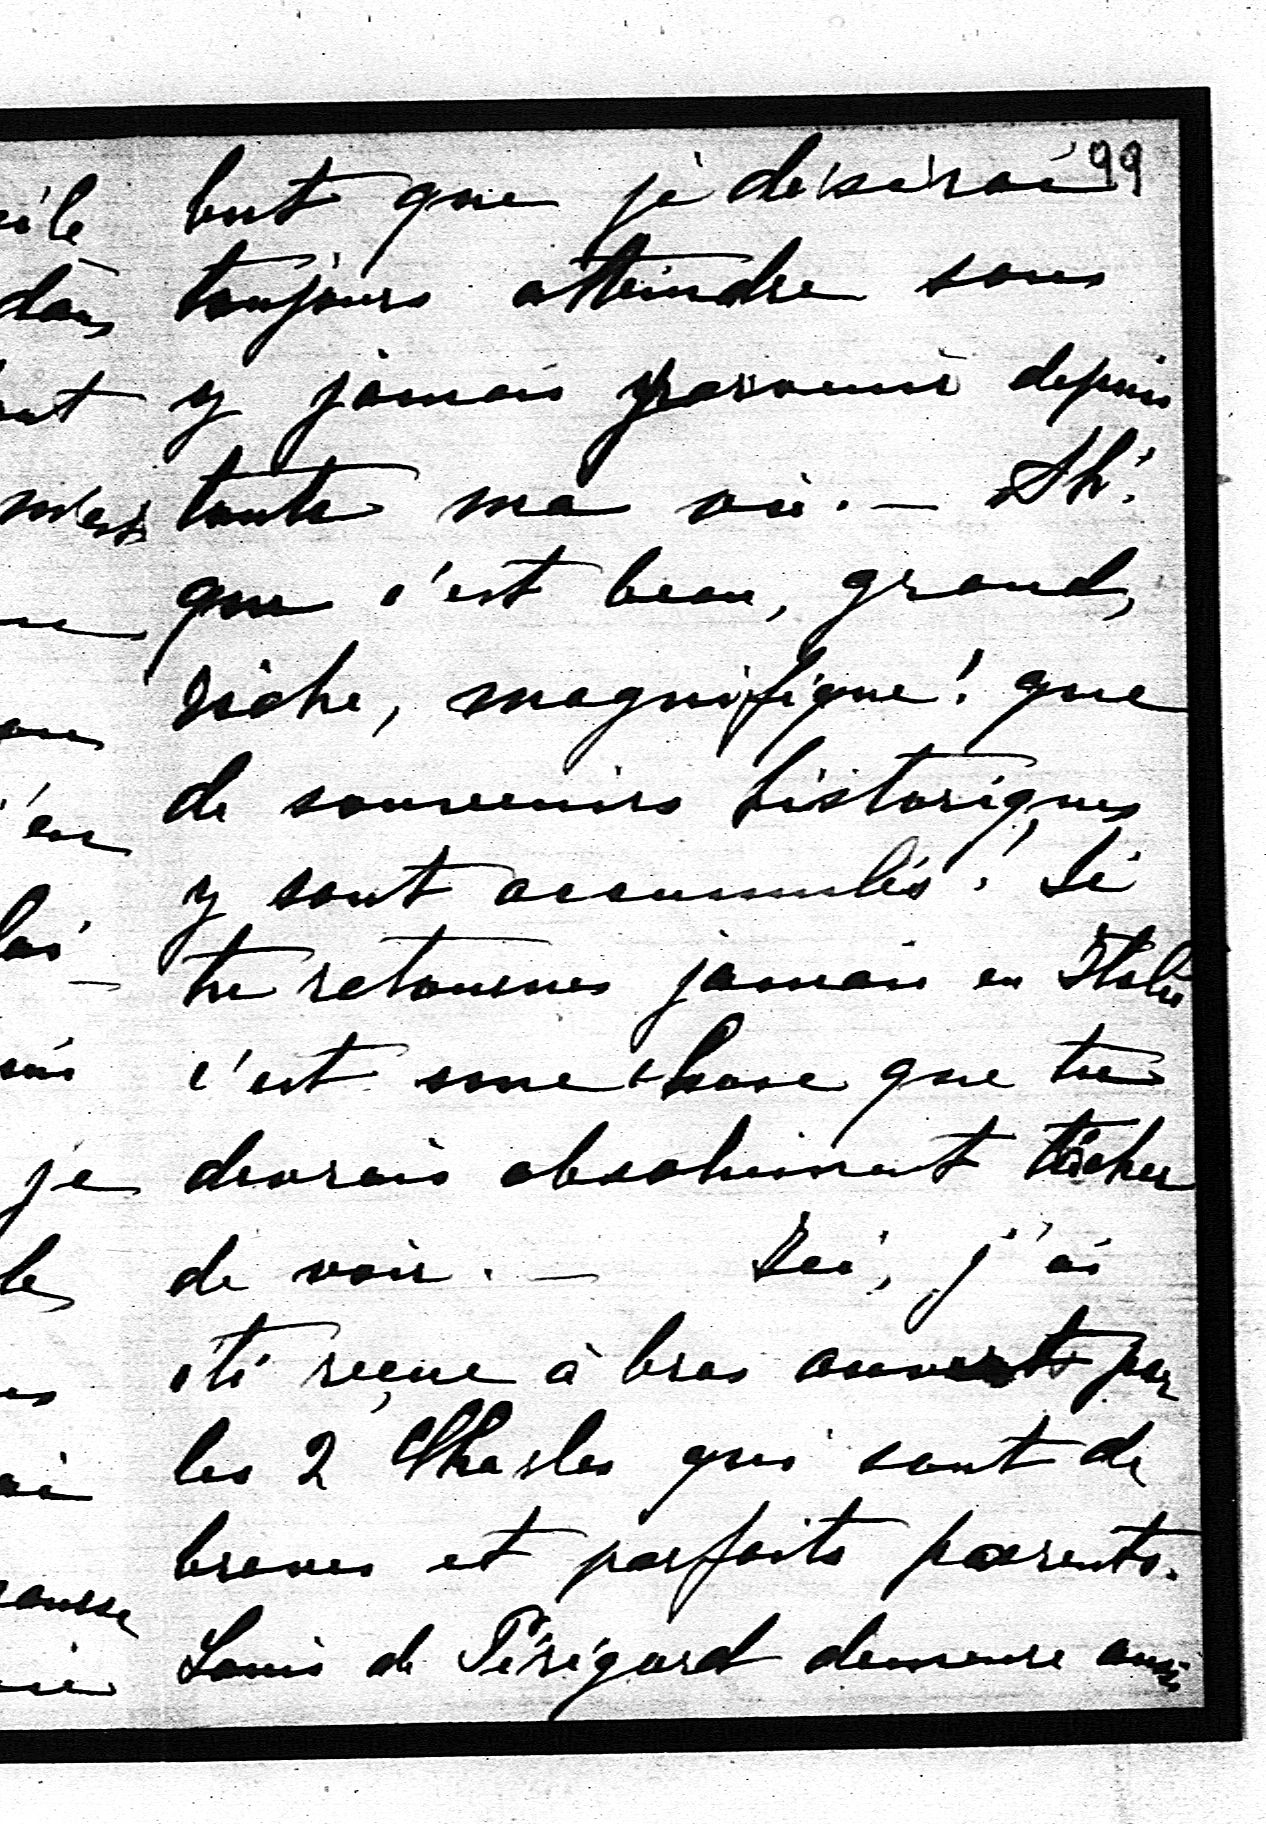 99
but que je désirai
toujours atteindre sans
y jamais parvenir depuis
toute ma vie. — Ah!
que c'est beau, grand,
riche, magnifique! que
de souvenirs historiques
y sont accumulés! Si
tu retournes jamais en Italie
c'est une chose que tu
devrais absolument tâcher
de voir. — Ici, j'ai
été reçue à bras ouverts par
les 2 Charles qui sont de
braves et parfaits parents.
Louis de Périgord demeure aussi
dans
m'est
je